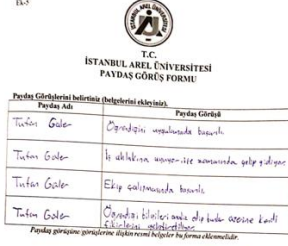 Ek-5
T.C.
İSTANBUL AREL ÜNİVERSİTESİ
PAYDAŞ GÖRÜŞ FORMU
Paydaş Görüşlerini belirtiniz (belgelerini ekleyiniz).
Paydaş Adı Paydaş Görüşü
Tufan Güler Öğrendiğini uygulamada başarılı
Tufan Güler İş ahlakına uyuyor işe zamanında gelip gidiyor
Tufan Güler Ekip çalışmasında başarılı
Tufan Güler Öğrendiği bilgileri analiz edip bunlar üzerine kendi
fikirlerini geliştiriliyor
Paydaş görüşüne görüşlerine ilişkin resmi belgeler bu forma eklenmelidir.